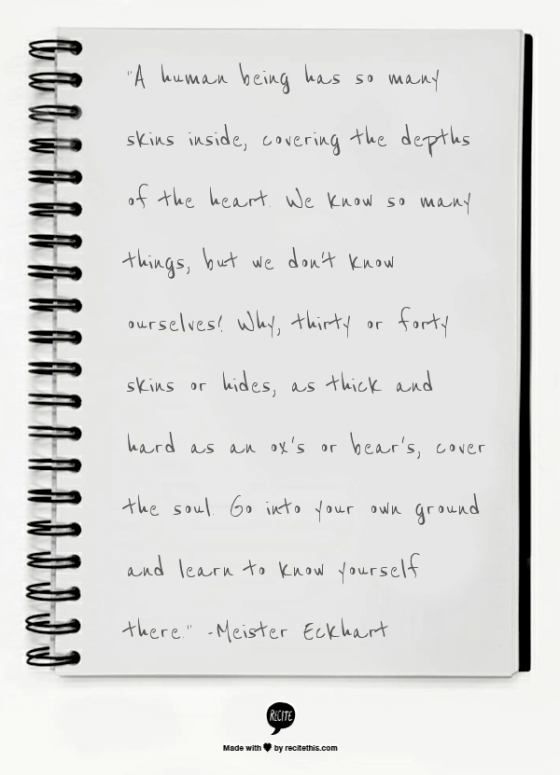 "A human being has so many
skins inside, covering the depths
of the heart. We know so many
things, but we don't know
ourselves! Why, thirty or forty
skins or hides, as thick and
hard as an ox's or bear's, cover
the soul. Go into your own ground
and learn to know yourself
there." -Meister Eckhart
RECITE
Made with ♥ by recitethis.com